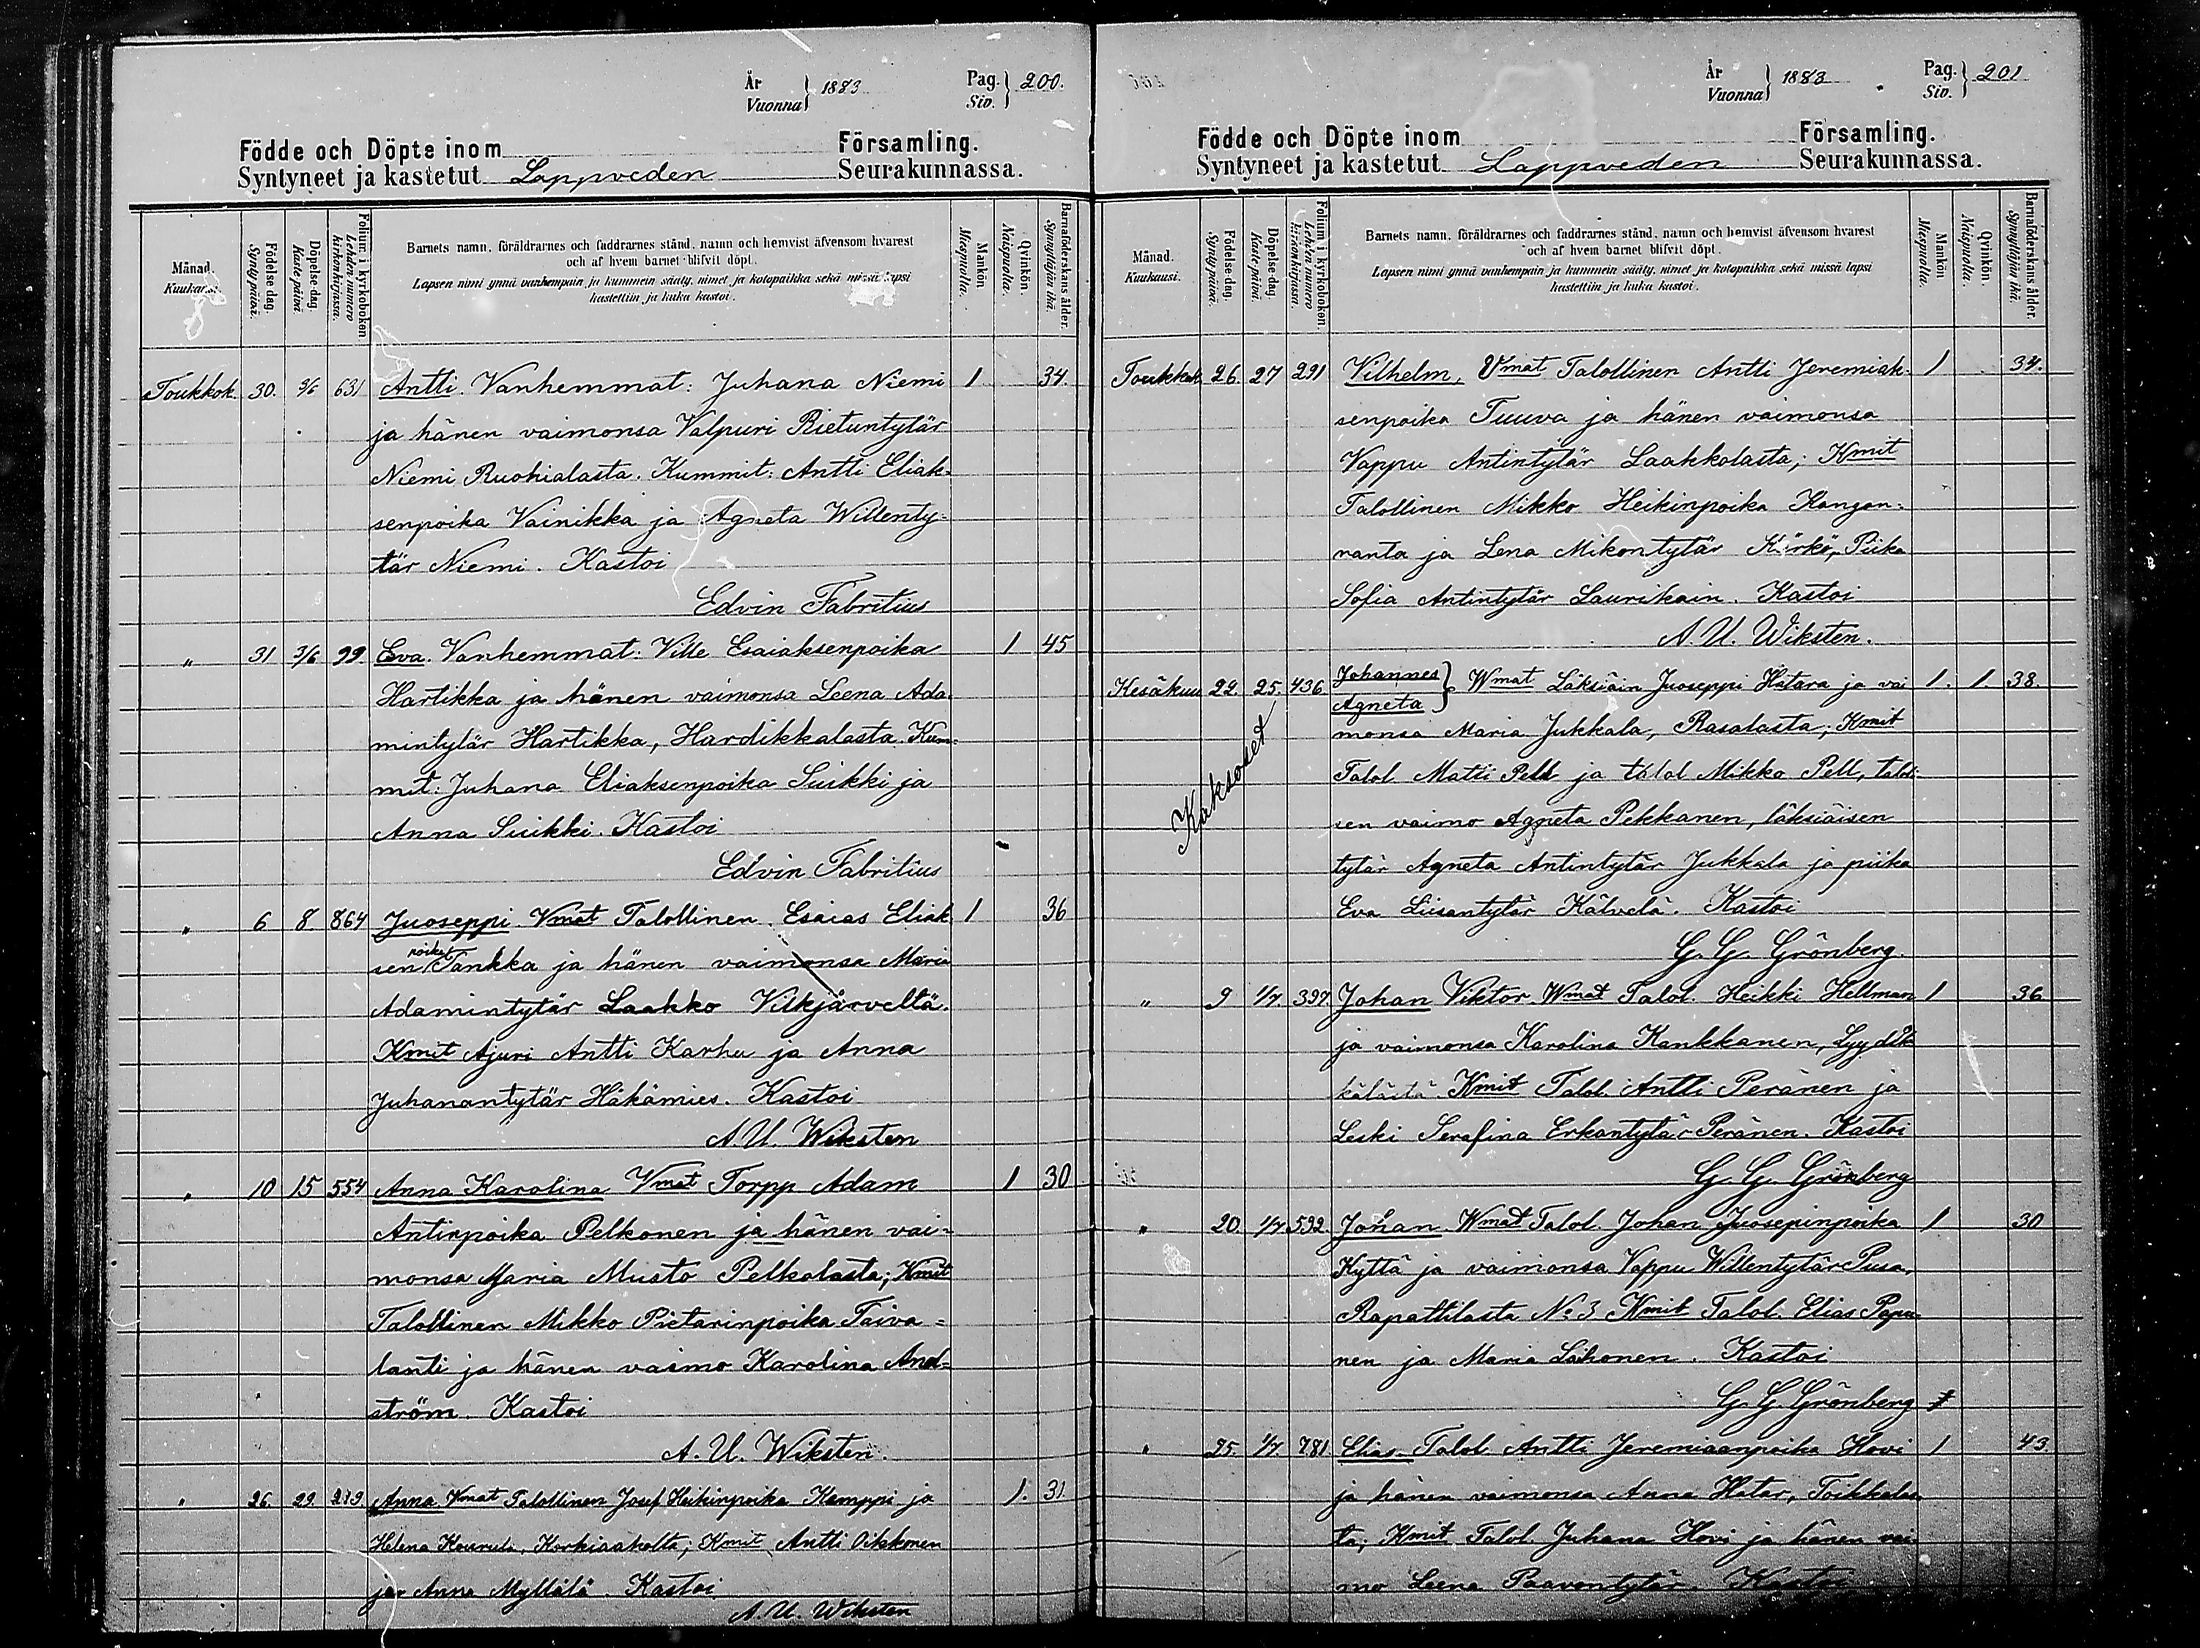 År
Vuonna } 1883 Pag.
Siv. } 200.
Födde och Döpte inom Församling.
Syntyneet ja kastetut Lappveden Seurakunnassa.
Månad.
Kuukausi.
Födelse dag.
Synty päivä.
Döpelse dag.
Kaste päivä.
Folium i kyrkoboken.
Lehden numero
kirkonkirjassa.
Barnets namn, föräldrarnes och faddrarnes stånd, namn och hemvist äfvensom hvarest
och af hvem barnet blifvit döpt.
Lapsen nimi ynnä vanhempain ja kummein sääty, nimet ja kotopaikka sekä missä lapsi
kastettiin ja kuka kastoi.
Mankön.
Miespuolta.
Qvinkön.
Naispuolta.
Barnaföderskans ålder.
Synnyttäjän ikä.
Toukkok. 30. 3/6 631 Antti. Vanhemmat: Juhana Niemi 1 34.
ja hänen vaimonsa Valpuri Rietuntytär
Niemi Ruohialasta. Kummit: Antti Eliak-
senpoika Vainikka ja Agneta Willenty-
tär Niemi. Kastoi
Edvin Fabritius
" 31 3/6 99. Eva. Vanhemmat: Ville Esaiaksenpoika 1 45
Hartikka ja hänen vaimonsa Leena Ada-
mintytär Hartikka, Hardikkalasta. Kum-
mit: Juhana Eliaksenpoika Suikki ja
Anna Suikki. Kastoi
Edvin Fabritius
" 6 8. 864 Juoseppi. Vmat Talollinen Esaias Eliak 1 36
sen poika Tankka ja hänen vaimonsa Maria
Adamintytär Laakko Vilkjärveltä.
Kmit Ajuri Antti Karhu ja Anna
Juhanantytär Häkämies. Kastoi
A. U. Wiksten
" 10 15 554 Anna Karolina Vmat Torpp Adam 1 30
Antinpoika Pelkonen ja hänen vai=
monsa Maria Musto Pelkolasta; Kmit
Talollinen Mikko Pietarinpoika Taiva=
lanti ja hänen vaimo Karolina And=
ström. Kastoi
A. U. Wiksten.
" 26. 29. Anna Vmat Talollinen Josef Heikinpoika Kamppi ja 1. 31
Helena, Korkiaakolta; Kmit Antti Oikkonen
ja Anna Myllälä. Kastoi
A. U. Wiksten
År
Vuonna } 1883 Pag.
Siv. } 201
Födde och Döpte inom Församling.
Syntyneet ja kastetut Lappveden Seurakunnassa.
Månad.
Kuukausi.
Födelse dag.
Synty päivä.
Döpelse dag.
Kaste päivä.
Folium i kyrkoboken.
Lehden numero
kirkonkirjassa.
Barnets namn, föräldrarnes och faddrarnes stånd, namn och hemvist äfvensom hvarest
och af hvem barnet blifvit döpt.
Lapsen nimi ynnä vanhempain ja kummein sääty, nimet ja kotopaikka sekä missä lapsi
kastettiin ja kuka kastoi.
Mankön.
Miespuolta.
Qvinkön.
Naispuolta.
Barnaföderskans ålder.
Synnyttäjän ikä.
Toukkok. 26. 27 291 Vilhelm, Vmat Talollinen Antti Jeremiak- 1 34.
senpoika Tuuva ja hänen vaimonsa
Vappu Antintytär Laakkolasta; Kmit
Talollinen Mikko Heikinpoika Kangan-
ranta ja Lena Mikontytär Kärkö, Piika
Sofia Antintytär Laurikain. Kastoi
A. U. Wiksten.
Kesäkuu 22. 25. 436 Johannes
Agneta } Wmat Läksiäin Juoseppi Hatara ja vai 1. 1. 38.
monsa Maria Jukkala, Rasalasta; Kmit
Talol Matti Pell ja talol Mikko Pell, talol-
Kaksoset
sen vaimo Agneta Pekkanen, läksiäisen
tytär Agneta Antintytär Jukkala ja piika
Eva Liisantytär Kälvelä. Kastoi
G. G. Grönberg.
" 9 1/7. 397. Johan Viktor Wmat Talol. Heikki Hellman 1 36
ja vaimonsa Karolina Kankkanen, Lyydik-
kälästä Kmit Talol. Antti Peränen ja
Leski Serafina Erkontytär Peränen. Kastoi
G. G. Grönberg
" 20. 1/7. 592. Johan Wmat Talol. Johan Juosepinpoika 1 30
Kyttä ja vaimonsa Vappu Willentytär Pusa,
Rapattilasta No 3 Kmit Talol. Elias Papu-
nen ja Maria Laihonen. Kastoi
G. G. Grönberg
" 25. 1/7. 781. Elias. Talol Antti Jeremiaanpoika Hovi 1 43.
ja hänen vaimonsa Anna Hatar, Toikkalas-
ta; Kmit Talol. Juhana Hovi ja hänen vai
mo Leena Paavontytär. Kastoi